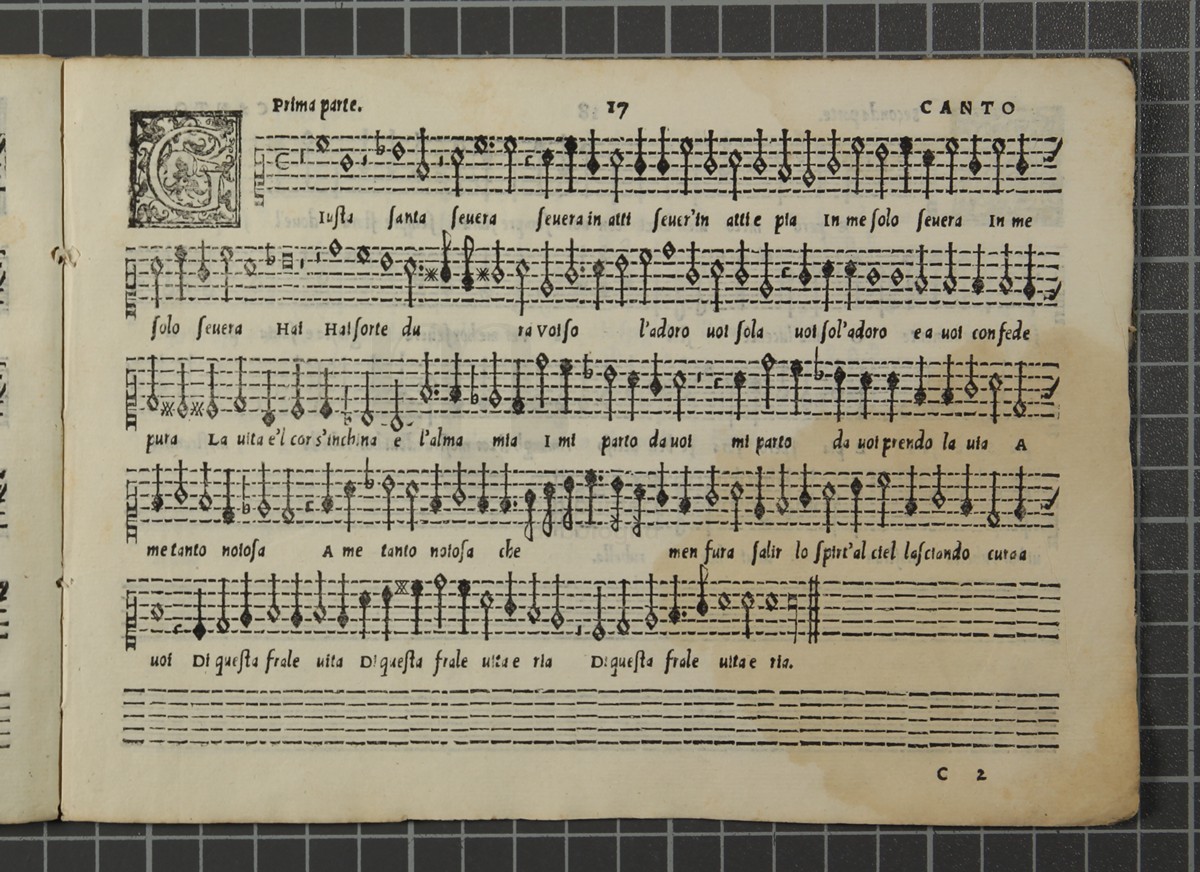 Prima parte. 17 CANTO
GIusta santa seuera seuera in atti seuer'in atti e pia In me solo seuera In me
solo seuera Hai Hai sorte du ra Voi so l'adoro uoi sola uoi sol'adoro e a uoi con fede
pura La uita e'l cor s'inchina e l'alma mia I mi parto da uoi mi parto da uoi prendo la uia A
me tanto noiosa A me tanto noiosa che men fura salir lo spirt'al ciel lasciando cura a
uoi Di questa frale uita Di questa frale uita e ria Di questa frale uita e ria.
C 2